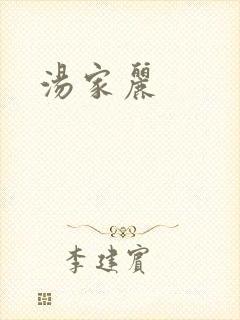 湯家麗
李建賓